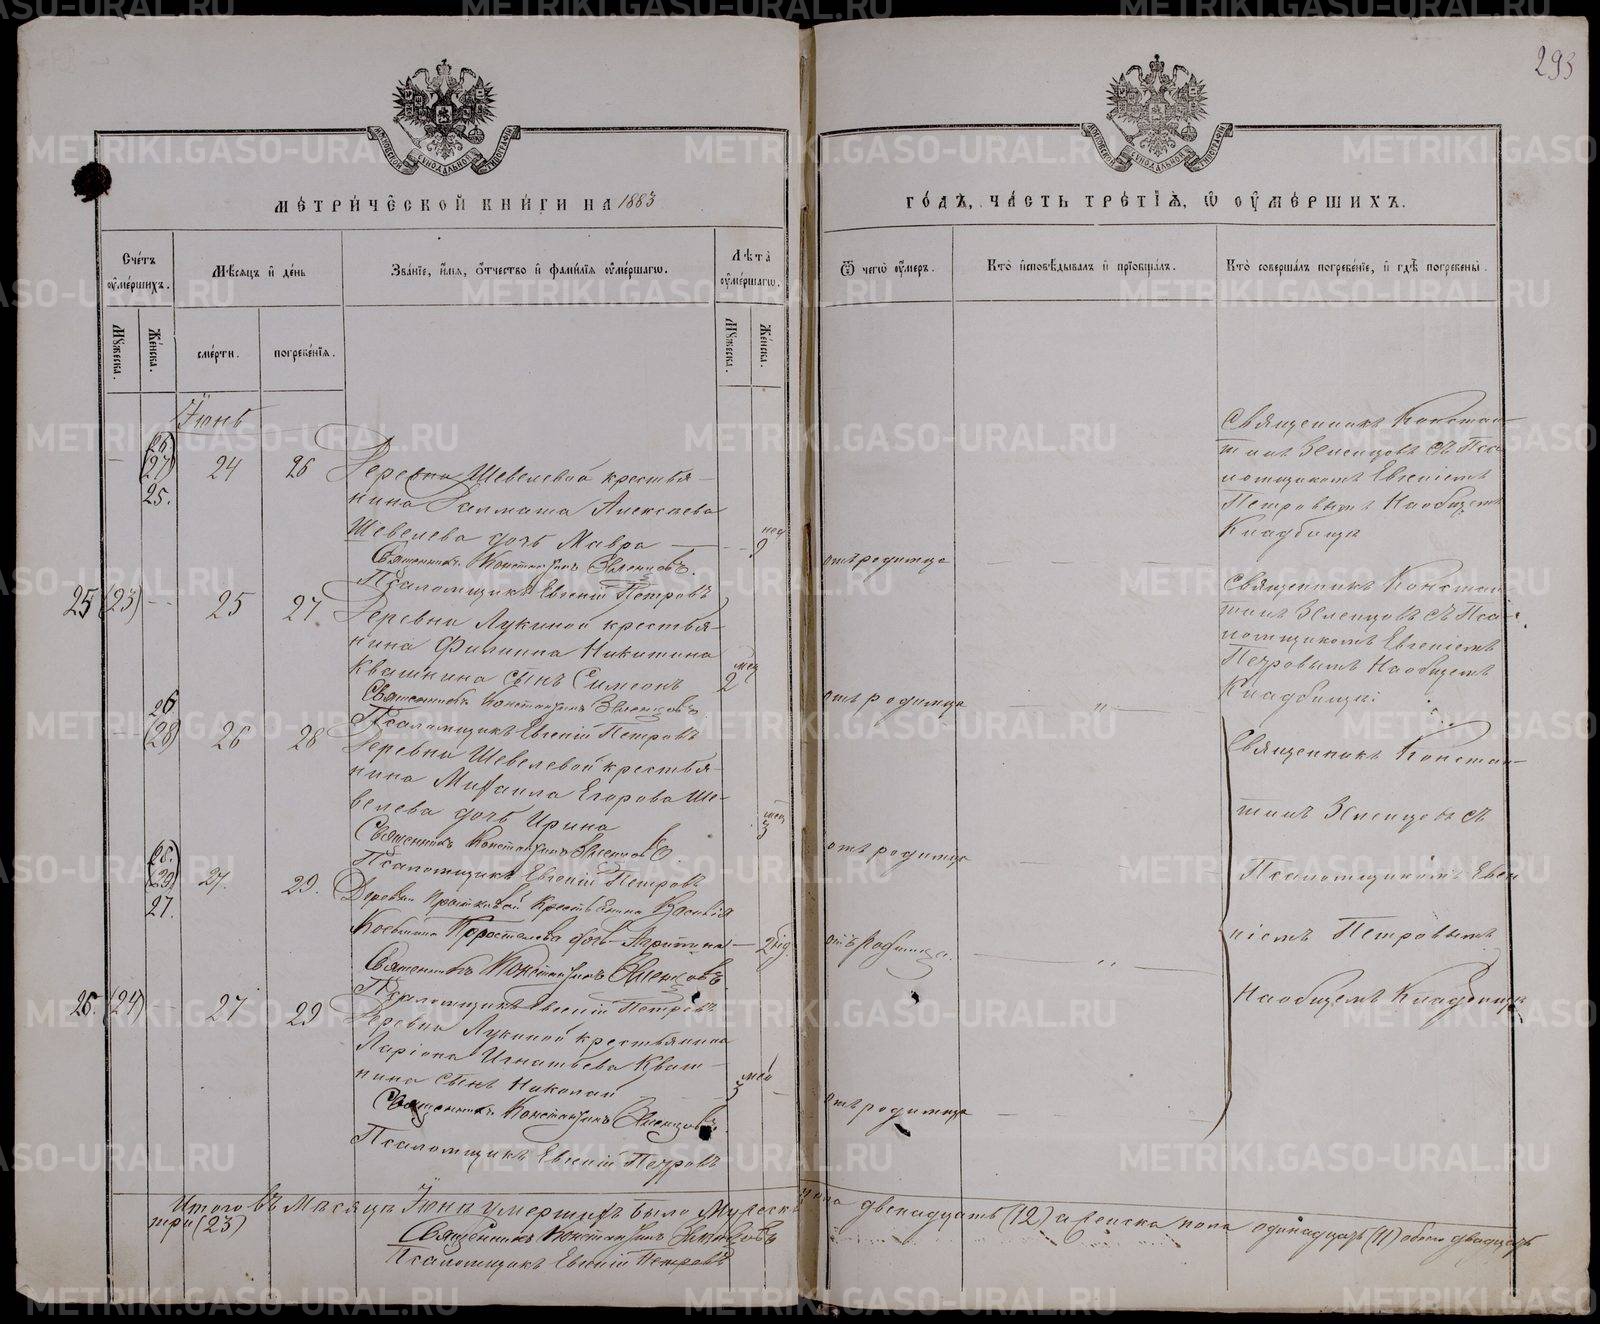 293
МОСКОВСКОЙ СѴНОДАЛЬНОЙ ТИПОГРАФІИ
МОСКОВСКОЙ СѴНОДАЛЬНОЙ ТИПОГРАФІИ
МЕТРИЧЕСКОЙ КНИГИ НА 1883
ГОДЪ, ЧАСТЬ ТРЕТІЯ, Ѿ ОУМЕРШИХЪ.
Счетъ оумершихъ.
Мѣсяцъ и день
Званіе, имя, отчество и фамилія оумершагѡ.
Лѣта оумершагѡ.
Ѿ чегѡ оумеръ.
Кто исповѣдывалъ и пріобщалъ.
Кто совершалъ погребеніе, и гдѣ погребены.
Мужеска.
Женска.
смерти.
погребенія.
Мужеска.
Женска.
Іюнь
(26)
(27) 24 26 Деревни Шевелевой крестья-
25.
нина Алексѣева
Шевелева дочь Мавра — 2 нед
Священникъ Константинъ Зеленцовъ.
Псаломщикъ Евгеній Петровъ
отъ родимца
Священникъ Констан-
тинъ Зеленцовъ съ Пса-
ломщикомъ Евгеніемъ
Петровымъ На общемъ
Кладбищѣ
25 (23) 25 27 Деревни Лукиной крестья-
нина Филиппа Никитина
Квашнина сынъ Симеонъ 2 мѣс
Священникъ Константинъ Зеленцовъ
Псаломщикъ Евгеній Петровъ
отъ родимца
Священникъ Констан-
тинъ Зеленцовъ съ Пса-
ломщикомъ Евгеніемъ
Петровымъ На общемъ
Кладбищѣ
26
(28) 26 28 Деревни Шевелевой крестья-
нина Михаила Егорова Ше-
велева дочь Ирина 3 мѣс
Священникъ Константинъ Зеленцовъ
Псаломщикъ Евгеній Петровъ
отъ родимца
Священникъ Констан-
тинъ Зеленцовъ съ
Псаломщикомъ Евге-
ніемъ Петровымъ
На общемъ Кладбищѣ
(28.)
(29) 27. 29. Деревни Крестьянина Василія
27.
Козьмина Коростелева дочь
Священникъ Константинъ Зеленцовъ
Псаломщикъ Евгеній Петровъ
отъ Родимца.
26. (24) 27 29 Деревни Лукиной крестьянина
Ларіона Игнатьева Кваш-
нина сынъ Николай 3 мѣс
Священникъ Константинъ Зеленцовъ
Псаломщикъ Евгеній Петровъ
отъ родимца
Итого въ Мѣсяцѣ Іюнѣ умершихъ было Мужеска пола двенадцать (12) а женска пола одинадцать (11) обоего двадцать
три (23)
Священникъ Константинъ Зеленцовъ
Псаломщикъ Евгеній Петровъ
METRIKI.GASO-URAL.RU